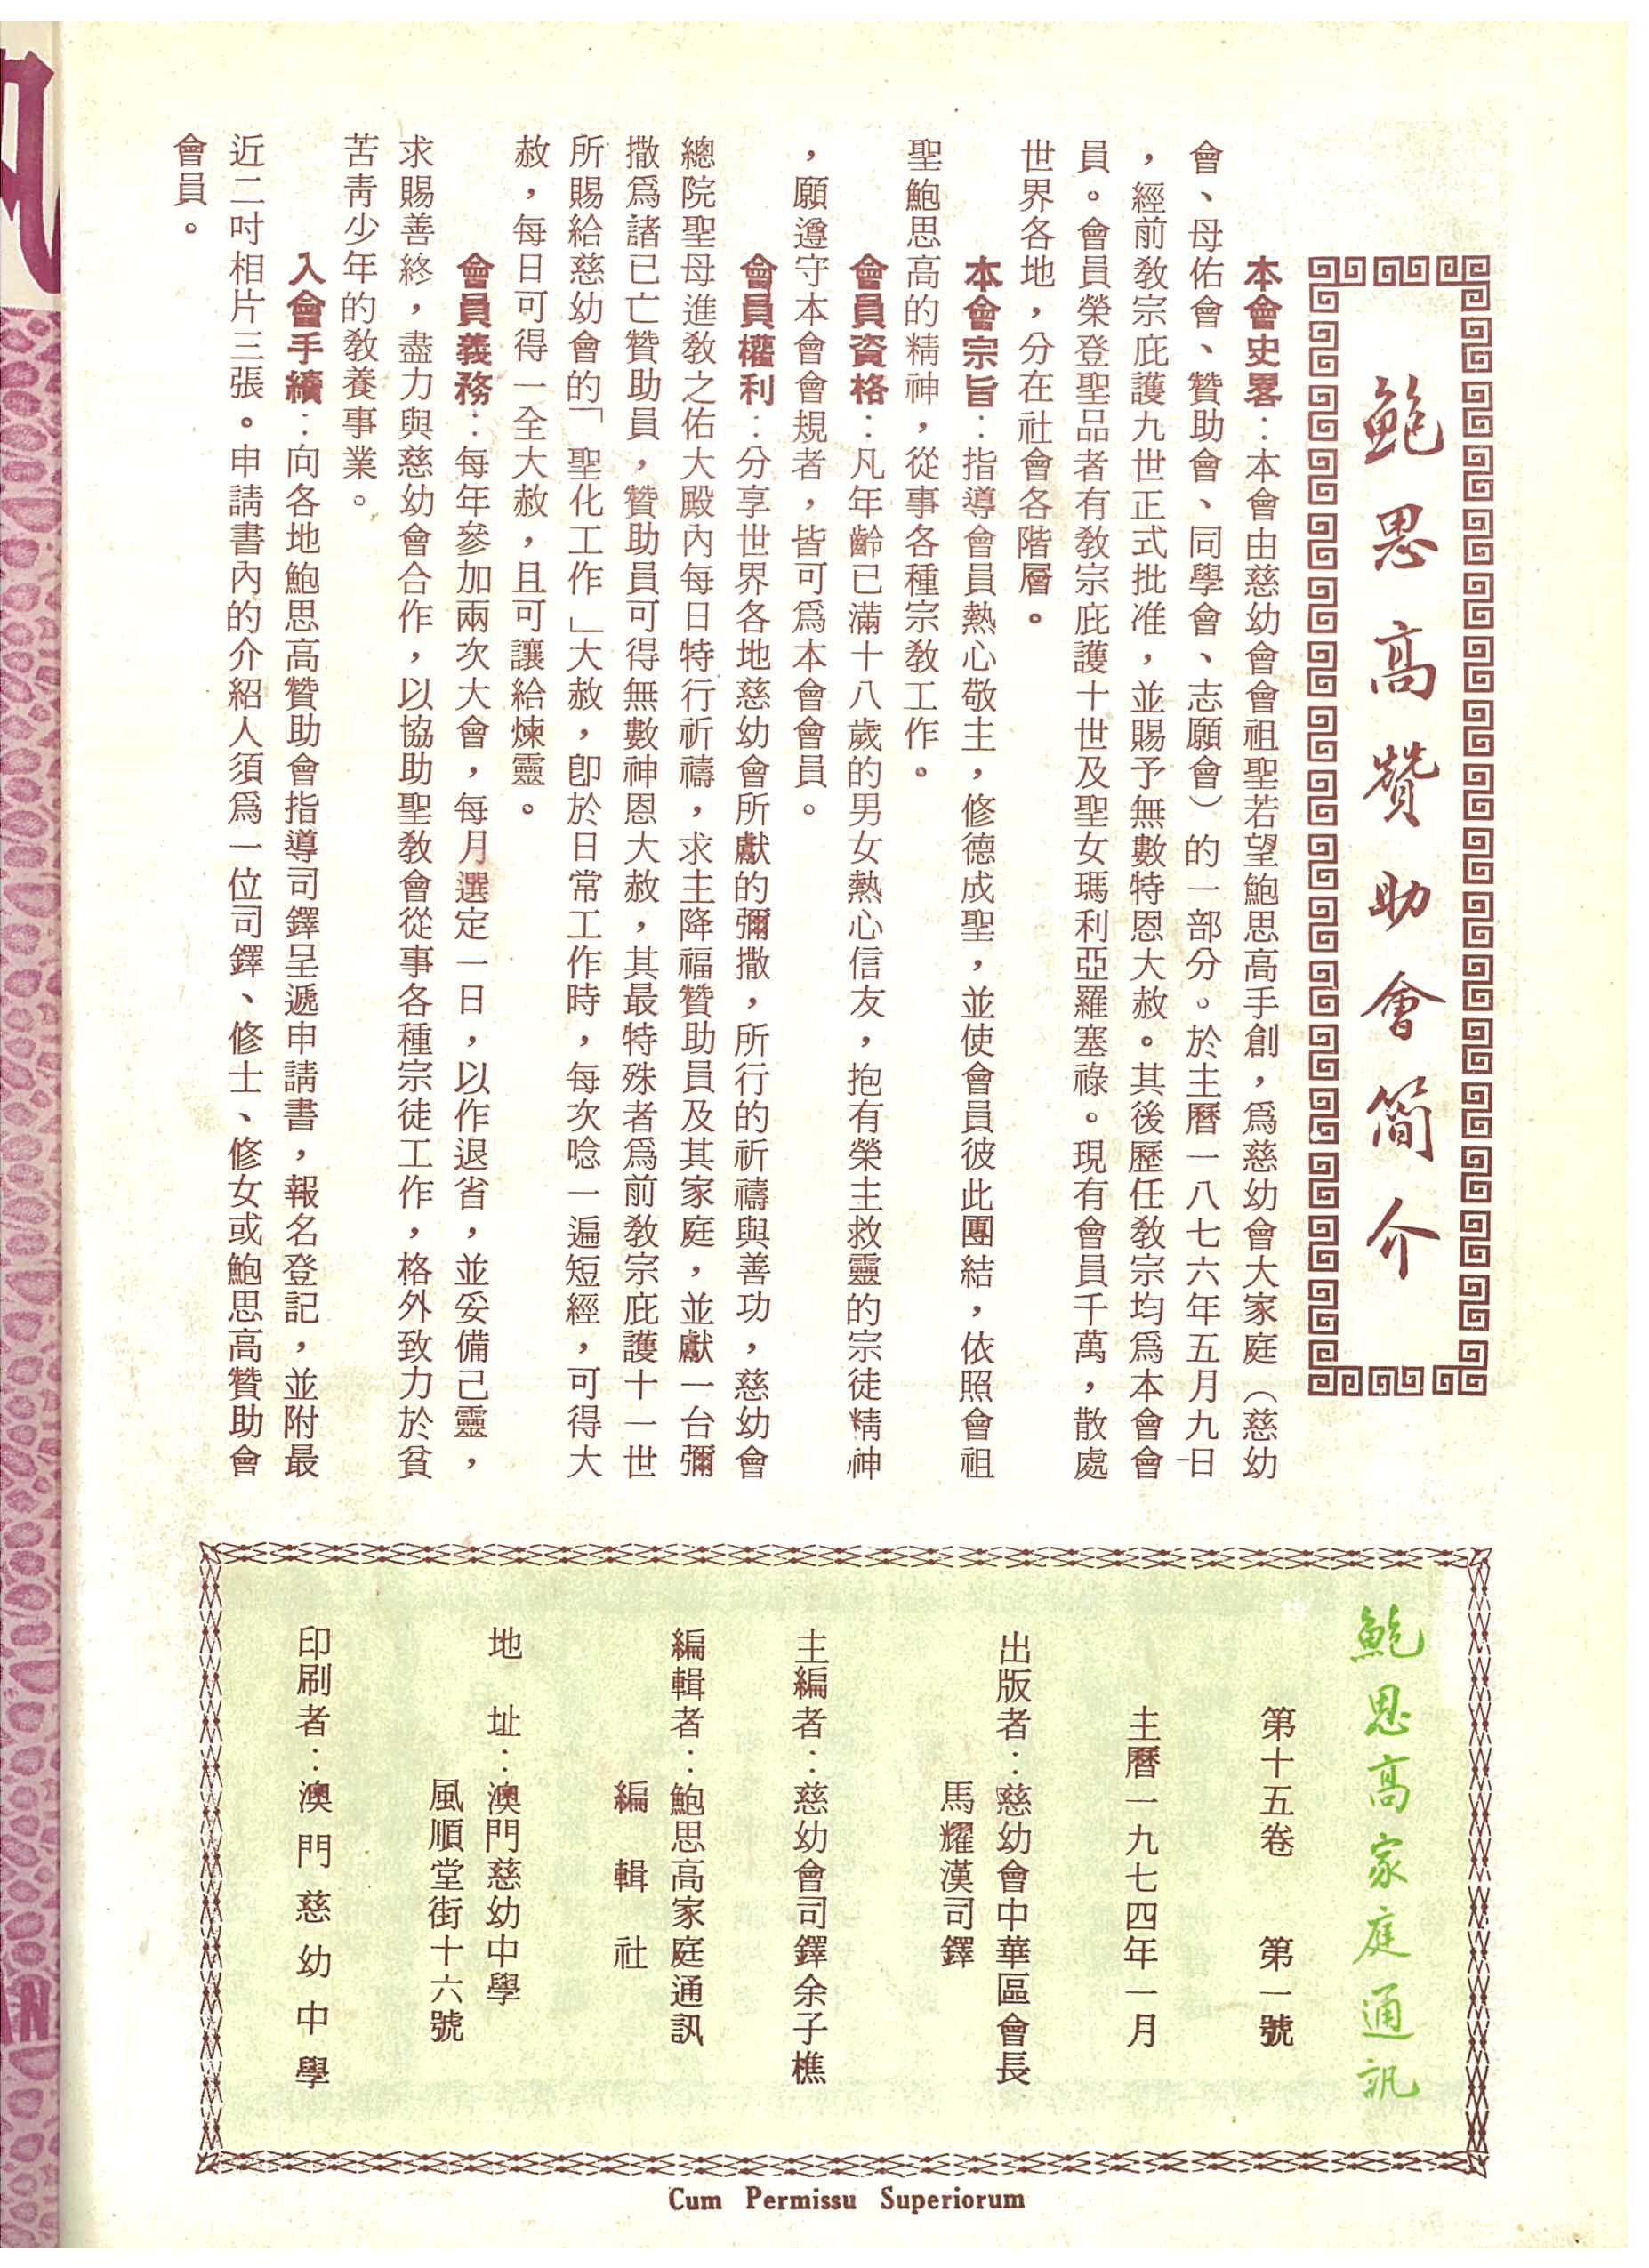 鮑思高贊助會簡介
本會史畧：本會由慈幼會會祖聖若望鮑思高手創，爲慈幼會大家庭（慈幼
會、母佑會、贊助會、同學會、志願會）的一部分。於主曆一八七六年五月九日
，經前教宗庇護九世正式批准，並賜予無數特恩大赦。其後歷任教宗均爲本會會
員。會員榮登聖品者有教宗庇護十世及聖女瑪利亞羅塞祿。現有會員千萬，散處
世界各地，分在社會各階層。
本會宗旨：指導會員熱心敬主，修德成聖，並使會員彼此團結，依照會祖
聖鮑思高的精神，從事各種宗教工作。
會員資格：凡年齡已滿十八歲的男女熱心信友，抱有榮主救靈的宗徒精神
，願遵守本會會規者，皆可爲本會會員。
會員權利：分享世界各地慈幼會所獻的彌撒，所行的祈禱與善功，慈幼會
總院聖母進教之佑大殿內每日特行祈禱，求主降福贊助員及其家庭，並獻一台彌
撒爲諸已亡贊助員，贊助員可得無數神恩大赦，其最特殊者爲前教宗庇護十一世
所賜給慈幼會的「聖化工作」大赦，卽於日常工作時，每次唸一遍短經，可得大
赦，每日可得一全大赦，且可讓給煉靈。
會員義務：每年參加兩次大會，每月選定一日，以作退省，並妥備己靈，
求賜善終，盡力與慈幼會合作，以協助聖教會從事各種宗徒工作，格外致力於貧
苦青少年的教養事業。
入會手續：向各地鮑思高贊助會指導司鐸呈遞申請書，報名登記，並附最
近二吋相片三張。申請書內的介紹人須爲一位司鐸、修士、修女或鮑思高贊助會
會員。
鮑思高家庭通訊
第十五卷　第一號
主曆一九七四年一月
出版者：慈幼會中華區會長
馬耀漢司鐸
主編者：慈幼會司鐸余子樵
編輯者：鮑思高家庭通訊
編輯社
地　址：澳門慈幼中學
風順堂街十六號
印刷者：澳門慈幼中學
Cum Permissu Superiorum